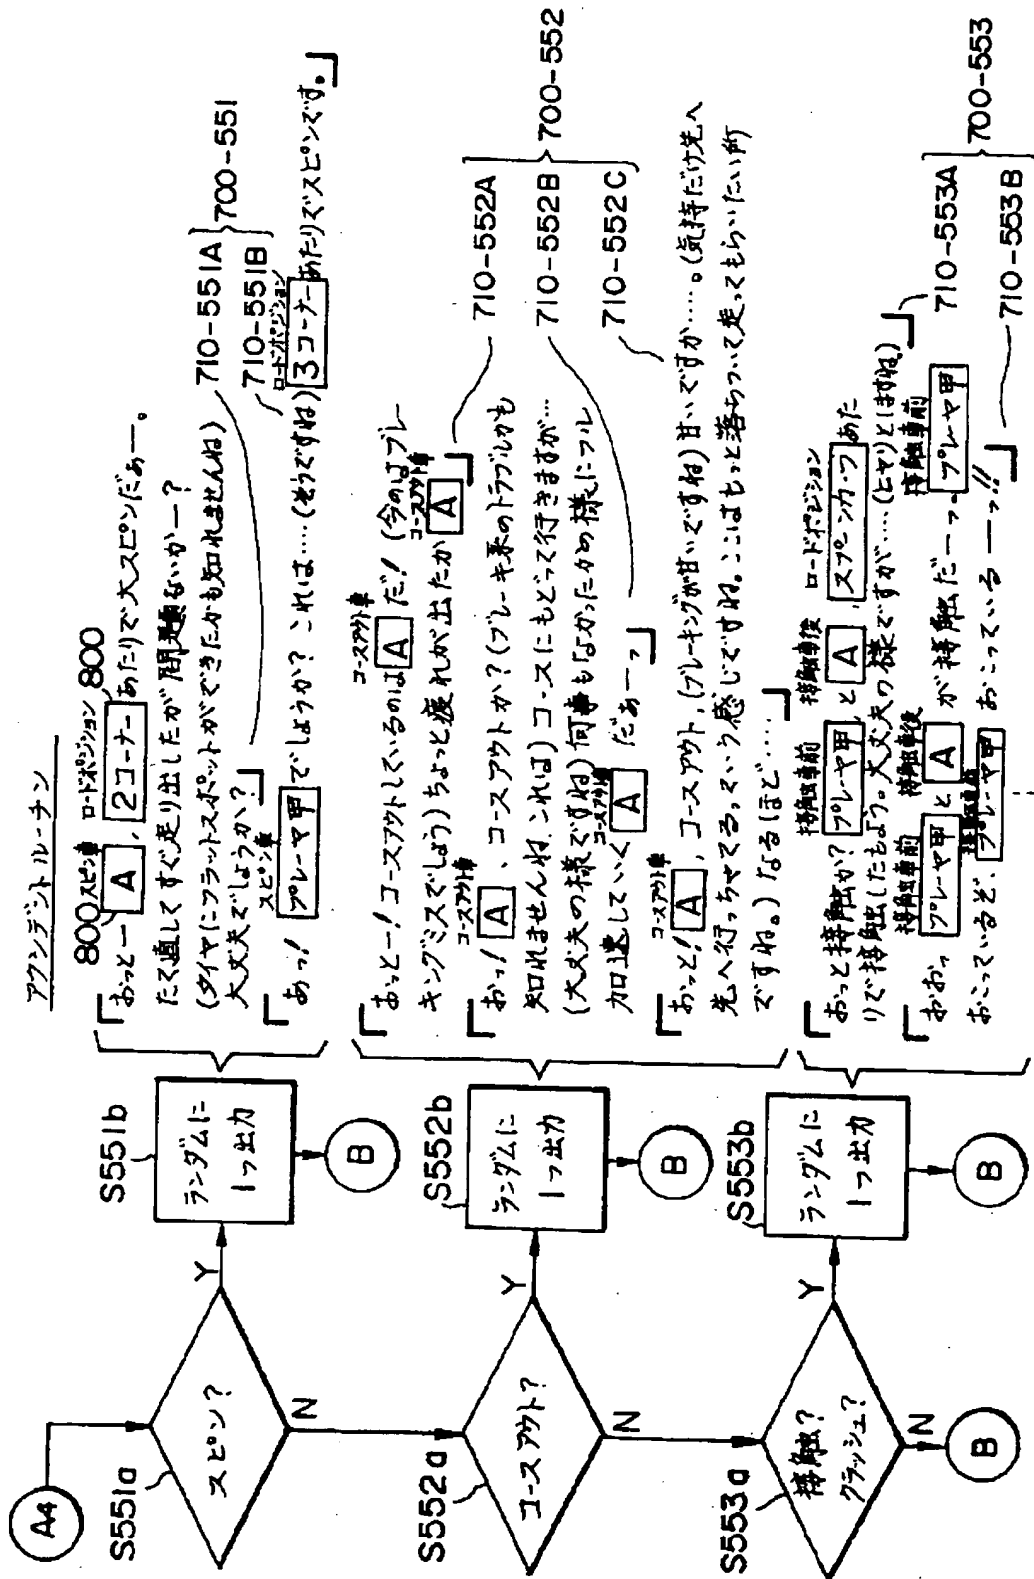 アクシデントルーチン
A4
S551a
スピン?
Y
N
S551b
ランダムに
1つ出力
B
800 スピン車 ロードポジション 800
「おっとー A 、2コーナー あたりで大スピンだぁー。
たて直してすぐ走り出したが問題ないかー?
(タイヤにフラットスポットができたかも知れませんね)
大丈夫でしょうか?」
710-551A
スピン車
「あっ! プレーヤ甲 でしょうか? これは……(そうですね) 3コーナー あたりでスピンです。」
ロードポジション
710-551B
700-551
S552a
コースアウト?
Y
N
S552b
ランダムに
1つ出力
B
コースアウト車
「おっとー! コースアウトしているのは A だ! (今のはブレー
キングミスでしょう) ちょっと疲れが出たか A 」
コースアウト車
710-552A
コースアウト車
「おっ! A 、コースアウトか? (ブレーキ系のトラブルかも
知れませんね、これは) コースにもどって行きますが…
(大丈夫の様ですね) 何事もなかったかの様にフル
コースアウト車
加速していく A だぁーっ」
710-552B
コースアウト車
「おっと! A 、コースアウト、(ブレーキングが甘いですね) 甘いですか……。(気持だけ先へ
先へ行っちゃてるっていう感じですね。ここはもっと落ちついて走ってもらいたい所
ですね。) なるほど……」
710-552C
700-552
S553a
接触?
クラッシュ?
Y
N
B
S553b
ランダムに
1つ出力
B
接触車前 接触車後 ロードポジション
「おっと接触か? プレーヤ甲 と A 、スプンカーブ あた
りで接触したもよう。大丈夫の様ですが…(ヒヤリとしますね)」
710-553A
接触車前 接触車後 接触車前
「おおっ プレーヤ甲 と A が接触だーっ。 プレーヤ甲
接触車前
おこっているぞ、プレーヤ甲 おこっているーーっ!!」
710-553B
700-553